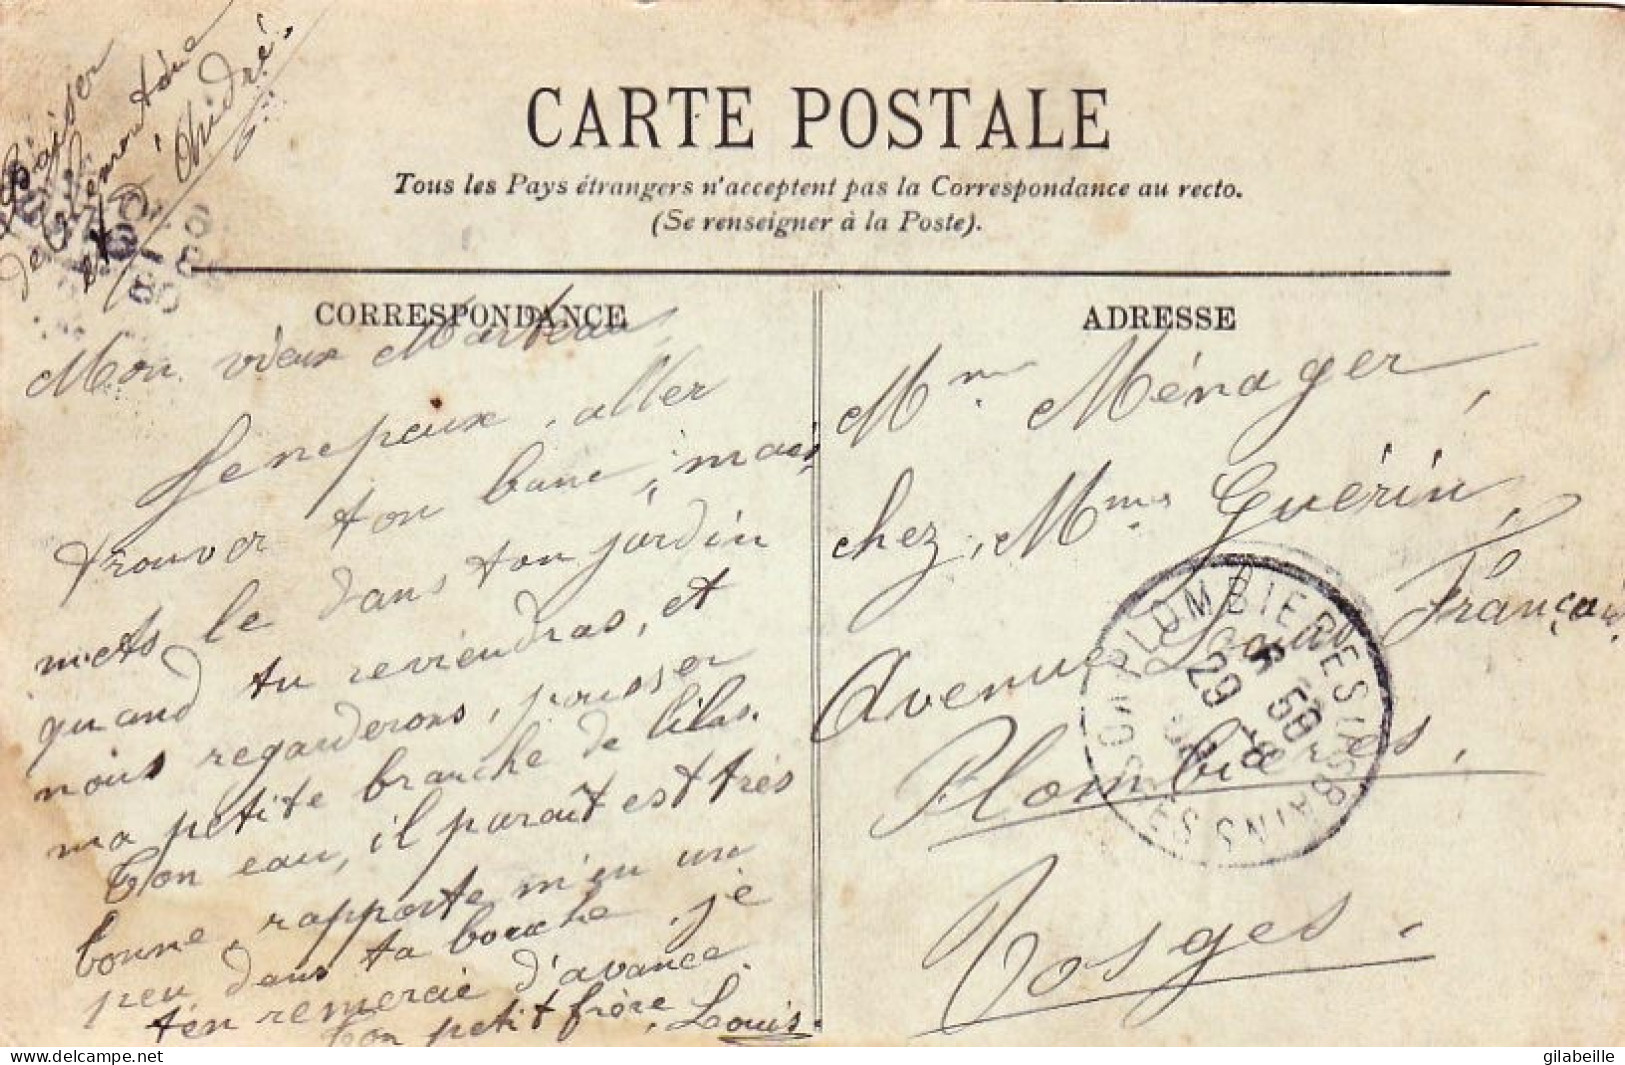 Baiser
de Clémontine
et André.
CARTE POSTALE
Tous les Pays étrangers n'acceptent pas la Correspondance au recto.
(Se renseigner à la Poste).
CORRESPONDANCE
Mon vieux Marteau,
Je ne peaux, aller
trouver ton banc, mais,
mets le dans ton jardin
quand tu reviendras, et
nous regarderons, pousser
ma petite branche de lilas.
Ton eau, il paraît est très
bonne, rapporte m'en un
peu dans ta bouche, je
t'en remercie d'avance.
Ton petit frère, Louis.
ADRESSE
Mme Ménager,
chez, Mme Guérin,
Avenue Louis Français
Plombières.
Vosges.
PLOMBIERES LES BAINS
VOSGES
29
delcampe.net
gilabeille